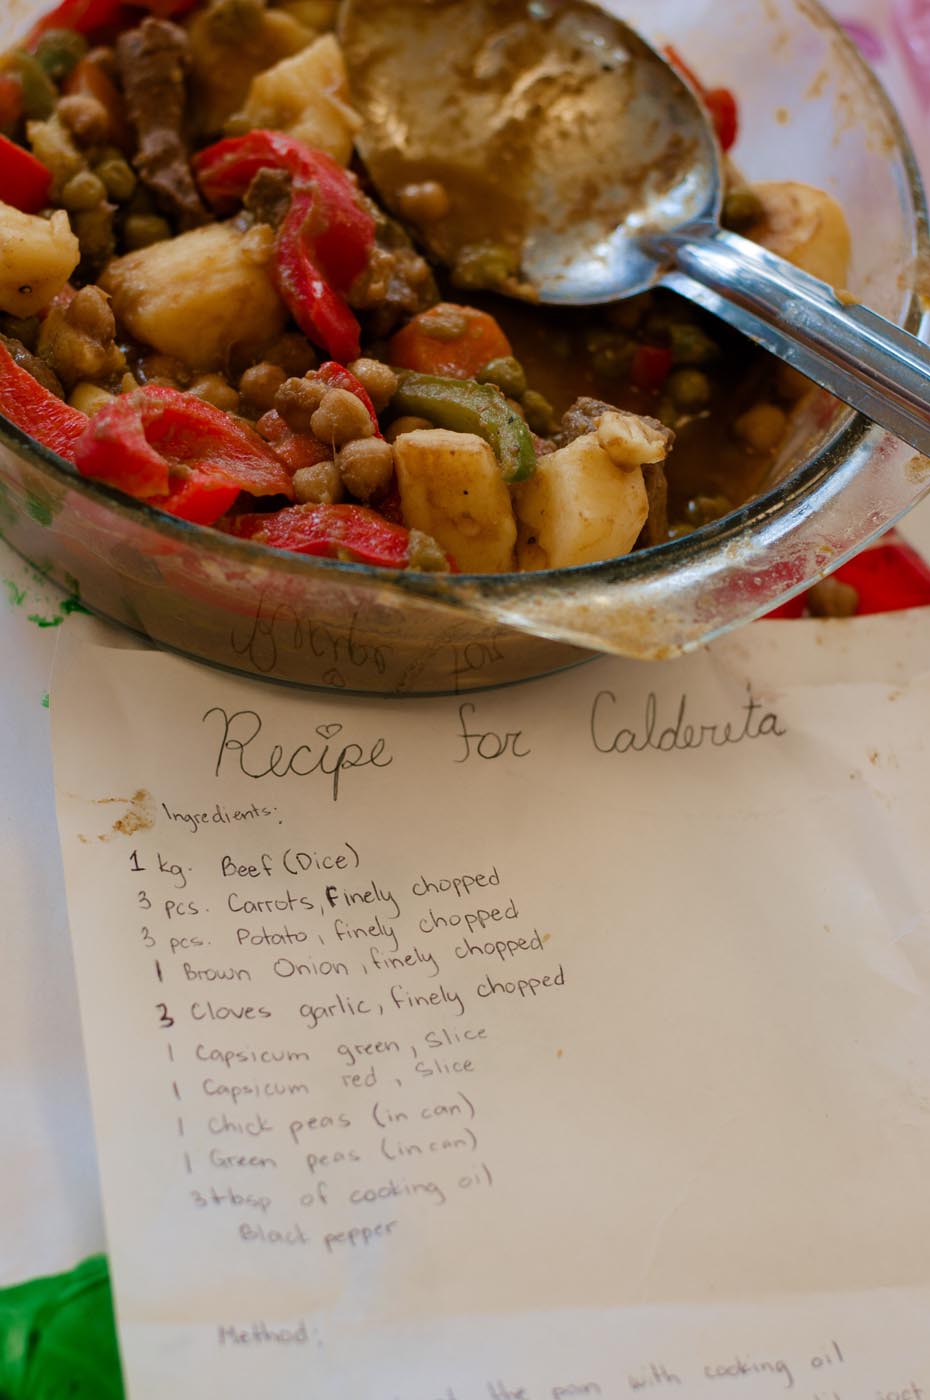 Recipe for Caldereta
Ingredients:
1 kg. Beef (Dice)
3 pcs. Carrots, Finely chopped
3 pcs. Potato, finely chopped
1 Brown Onion, finely chopped
3 Cloves garlic, finely chopped
1 Capsicum green, slice
1 Capsicum red, slice
1 Chick peas (in can)
1 Green peas (in can)
3 tbsp of cooking oil
Black pepper
Method:
the pan with cooking oil